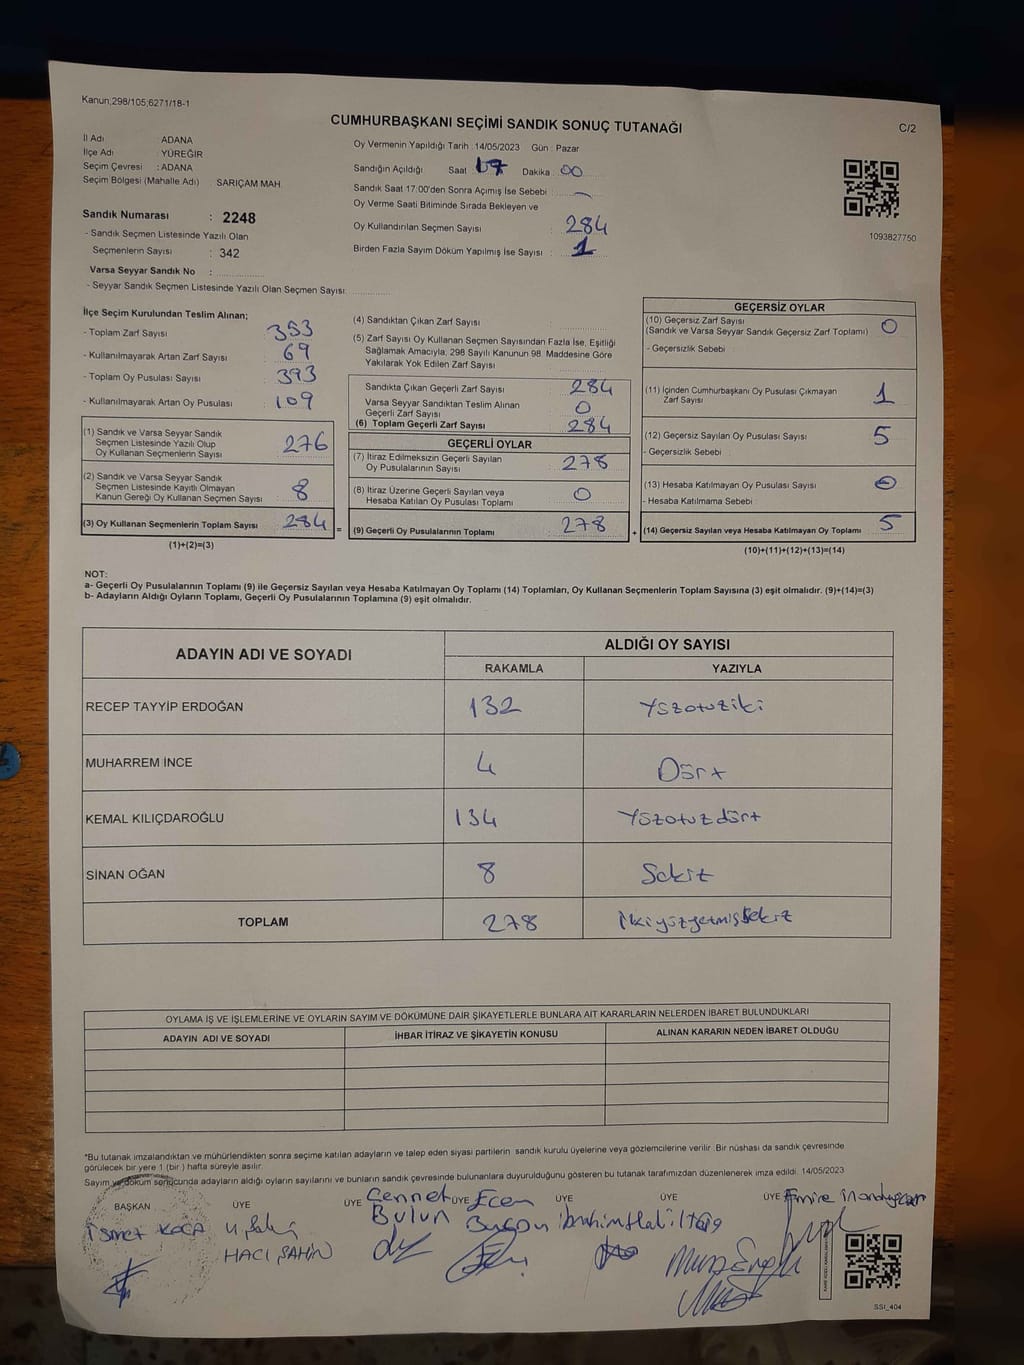 Kanun;298/105;6271/18-1
CUMHURBAŞKANI SEÇİMİ SANDIK SONUÇ TUTANAĞI
C/2
İl Adı ADANA
İlçe Adı : YÜREĞİR
Seçim Çevresi : ADANA
Seçim Bölgesi (Mahalle Adı) SARIÇAM MAH.
Sandık Numarası : 2248
- Sandık Seçmen Listesinde Yazılı Olan
Seçmenlerin Sayısı : 342
Varsa Seyyar Sandık No :
- Seyyar Sandık Seçmen Listesinde Yazılı Olan Seçmen Sayısı:
Oy Vermenin Yapıldığı Tarih : 14/05/2023 Gün : Pazar
Sandığın Açıldığı Saat : 17 Dakika : 00
Sandık Saat 17:00'den Sonra Açımış İse Sebebi : -
Oy Verme Saati Bitiminde Sırada Bekleyen ve
Oy Kullandırılan Seçmen Sayısı : 284
Birden Fazla Sayım Döküm Yapılmış İse Sayısı : 1
1093827750
İlçe Seçim Kurulundan Teslim Alınan;
- Toplam Zarf Sayısı : 353
- Kullanılmayarak Artan Zarf Sayısı : 69
- Toplam Oy Pusulası Sayısı : 393
- Kullanılmayarak Artan Oy Pusulası : 109
(1) Sandık ve Varsa Seyyar Sandık
Seçmen Listesinde Yazılı Olup
Oy Kullanan Seçmenlerin Sayısı : 276
(2) Sandık ve Varsa Seyyar Sandık
Seçmen Listesinde Kayıtlı Olmayan
Kanun Gereği Oy Kullanan Seçmen Sayısı : 8
(3) Oy Kullanan Seçmenlerin Toplam Sayısı : 284
(1)+(2)=(3)
=
(4) Sandıktan Çıkan Zarf Sayısı :
(5) Zarf Sayısı Oy Kullanan Seçmen Sayısından Fazla İse, Eşitliği
Sağlamak Amacıyla, 298 Sayılı Kanunun 98. Maddesine Göre
Yakılarak Yok Edilen Zarf Sayısı :
Sandıkta Çıkan Geçerli Zarf Sayısı : 284
Varsa Seyyar Sandıktan Teslim Alınan
Geçerli Zarf Sayısı : 0
(6) Toplam Geçerli Zarf Sayısı : 284
GEÇERLİ OYLAR
(7) İtiraz Edilmeksizin Geçerli Sayılan
Oy Pusulalarının Sayısı : 278
(8) İtiraz Üzerine Geçerli Sayılan veya
Hesaba Katılan Oy Pusulası Toplamı : 0
(9) Geçerli Oy Pusulalarının Toplamı : 278
+
GEÇERSİZ OYLAR
(10) Geçersiz Zarf Sayısı : 0
(Sandık ve Varsa Seyyar Sandık Geçersiz Zarf Toplamı)
- Geçersizlik Sebebi :
(11) İçinden Cumhurbaşkanı Oy Pusulası Çıkmayan
Zarf Sayısı : 1
(12) Geçersiz Sayılan Oy Pusulası Sayısı : 5
- Geçersizlik Sebebi :
(13) Hesaba Katılmayan Oy Pusulası Sayısı : 0
- Hesaba Katılmama Sebebi :
(14) Geçersiz Sayılan veya Hesaba Katılmayan Oy Toplamı : 5
(10)+(11)+(12)+(13)=(14)
NOT:
a- Geçerli Oy Pusulalarının Toplamı (9) ile Geçersiz Sayılan veya Hesaba Katılmayan Oy Toplamı (14) Toplamları, Oy Kullanan Seçmenlerin Toplam Sayısına (3) eşit olmalıdır. (9)+(14)=(3)
b- Adayların Aldığı Oyların Toplamı, Geçerli Oy Pusulalarının Toplamına (9) eşit olmalıdır.
ADAYIN ADI VE SOYADI
ALDIĞI OY SAYISI
RAKAMLA YAZIYLA
RECEP TAYYİP ERDOĞAN 132 Yüzotuziki
MUHARREM İNCE 4 Dört
KEMAL KILIÇDAROĞLU 134 Yüzotuzdört
SİNAN OĞAN 8 Sekiz
TOPLAM 278 İkiyüzyetmişsekiz
OYLAMA İŞ VE İŞLEMLERİNE VE OYLARIN SAYIM VE DÖKÜMÜNE DAİR ŞİKAYETLERLE BUNLARA AİT KARARLARIN NELERDEN İBARET BULUNDUKLARI
ADAYIN ADI VE SOYADI İHBAR İTİRAZ VE ŞİKAYETİN KONUSU ALINAN KARARIN NEDEN İBARET OLDUĞU
*Bu tutanak imzalandıktan ve mühürlendikten sonra seçime katılan adayların ve talep eden siyasi partilerin sandık kurulu üyelerine veya gözlemcilerine verilir. Bir nüshası da sandık çevresinde
görülecek bir yere 1 (bir) hafta süreyle asılır.
Sayım ve döküm sonucunda adayların aldığı oyların sayılarını ve bunların sandık çevresinde bulunanlara duyurulduğunu gösteren bu tutanak tarafımızdan düzenlenerek imza edildi. 14/05/2023
BAŞKAN ÜYE ÜYE ÜYE ÜYE ÜYE ÜYE
İsmet KOCA
HACI ŞAHİN
Cennet
Bulun
Ecen
İbrahim Halil
Emine
SSİ_404